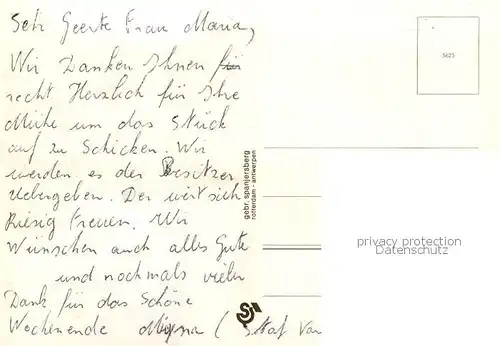 Sehr Geerte Frau Maria,
Wir Danken Ihnen für
recht Herzlich für Ihe
Mühe um das Stück
auf zu Schicken. Wir
werden es der Besitzer
Uebergeben. Der wirt sich
Riesig Freuen. Wir
Wünschen auch alles Gute
und nochmals vielen
Dank für das Schöne
Wochenende
5623
gebr. spanjersberg
rotterdam - antwerpen
privacy protection
Datenschutz